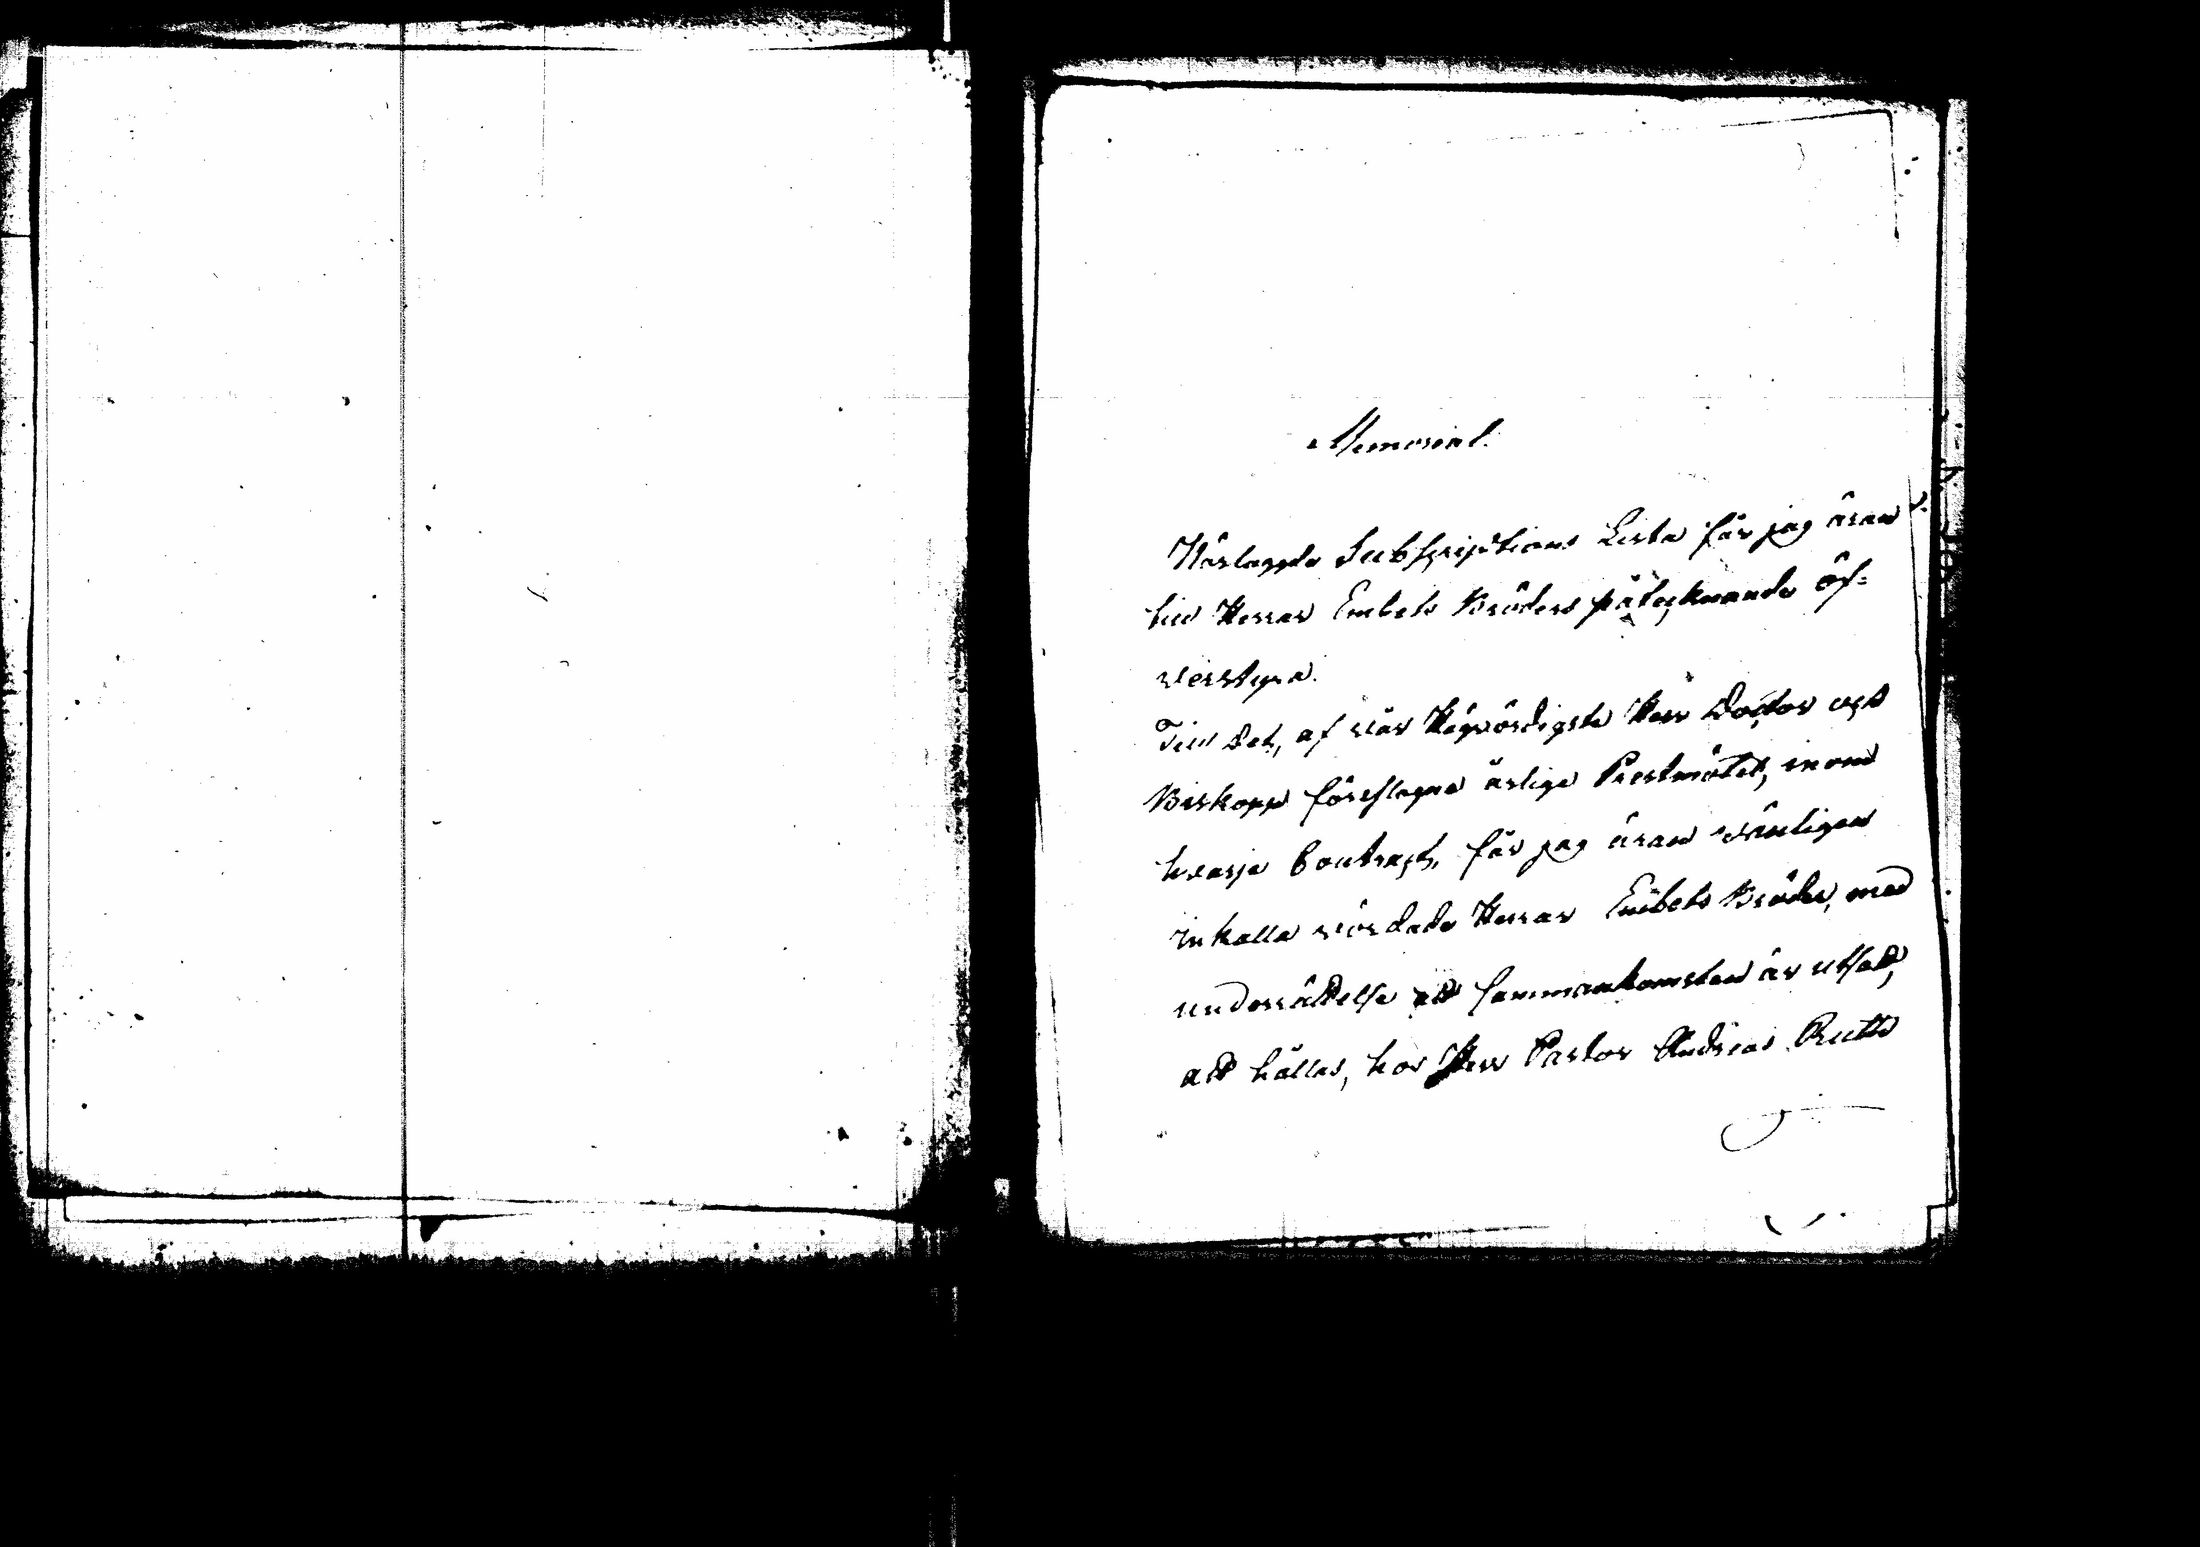 Memorial.
Närlaggda Subscriptions Lista får jag äran
till Herrar Embets Bröders påtecknande öf=
verstyra.
Till det, af vår Högvördigste Herr Doctor och
Biskopp föreslagna årliga Prestmötet, inom
hvarje Contract, får jag äran vänligen
inkalla vördade Herrar Embets Bröder, med
underrättelse att sammankomsten är utsatt,
att hållas, hos Herr Pastor Andreas Ruth